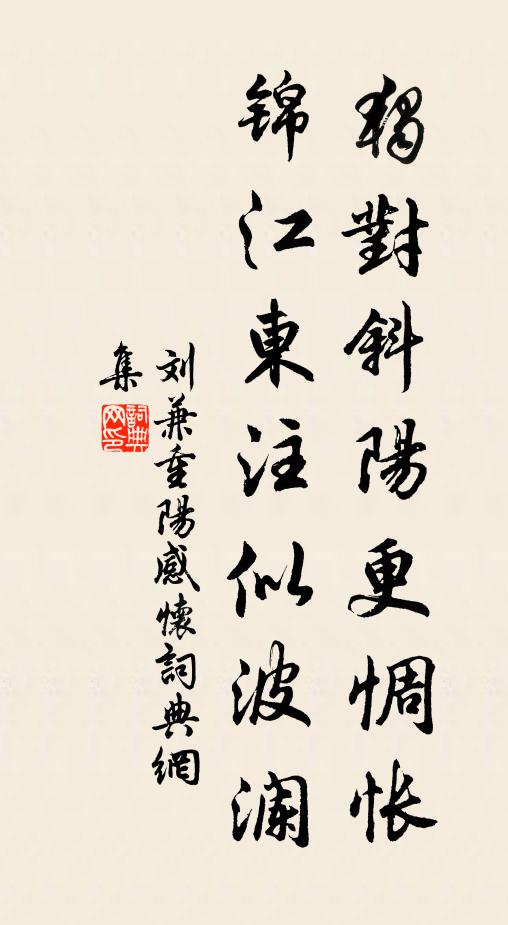 獨對斜陽更惆悵
锦江東注似波瀾
刘兼重陽感懷詞典網
集
詞典
网印